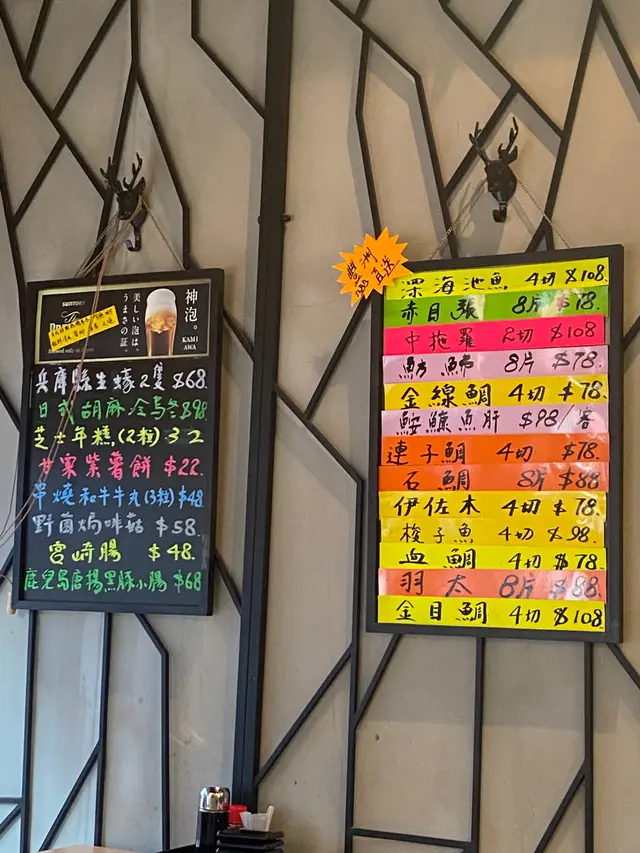 SUNTORY
The
神泡。
KAMI
AWA
美しい泡は、
うまさの証。
兵庫縣生蠔2隻 $68.
日式胡麻冷烏冬$98.
芝士年糕,(2粒) 32
甘栗紫薯餅 $22.
串燒和牛牛丸(3粒) $48
野菌焗啡菇 $58.
宮崎腸 $48.
鹿兒島唐揚黑豚小腸 $68
豐洲
直送
深海池魚 4切 $108.
赤目張 8片 $78.
中拖羅 2切 $108
魴鮄 8片 $78.
金線鯛 4切 $78.
鮟鱇魚肝 $98/客
連子鯛 4切 $78.
石鯛 8片 $88
伊佐木 4切 $78.
梭子魚 4切 $98.
血鯛 4切 $78.
羽太 8片 $88.
金目鯛 4切 $108.